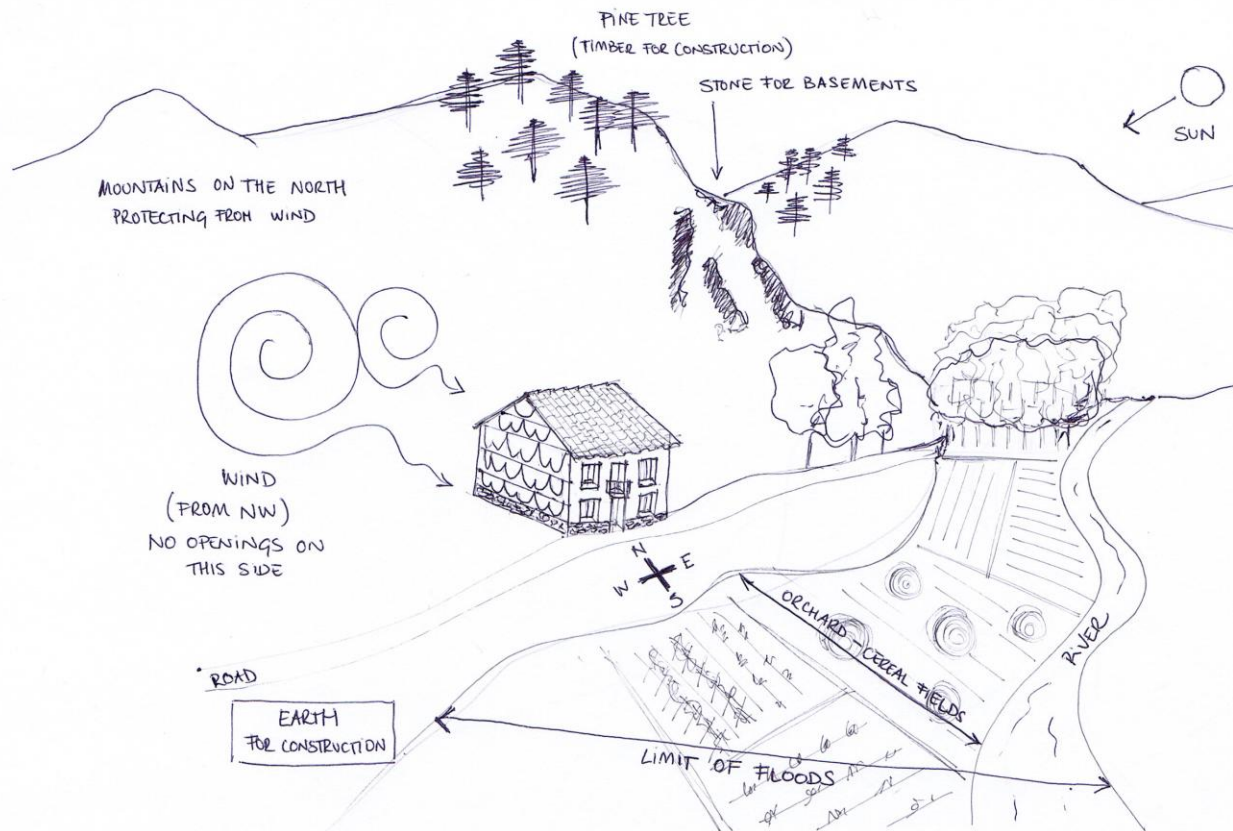 PINE TREE
(TIMBER FOR CONSTRUCTION)
STONE FOR BASEMENTS
SUN
MOUNTAINS ON THE NORTH
PROTECTING FROM WIND
WIND
(FROM NW)
NO OPENINGS ON
THIS SIDE
N
W E
S
ORCHARD - CEREAL FIELDS
RIVER
ROAD
EARTH
FOR CONSTRUCTION
LIMIT OF FLOODS